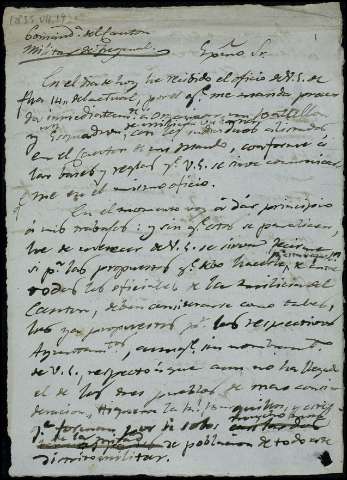 1835.VII.17
Comand.ª del Canton
Militar de
Exmo Sr.
En el dia de hoy he recibido el oficio de V.E. de
fha 14 del actual, por el q.e me manda proceda
inmediatamente a organizar un batallon
y Esquadron, con los individuos alistados
en el Canton de mi mando, conforme á
las bases y reglas q.e V.E. se sirve comunicar
me en el mismo oficio.
En el momento voy á dar principio
á mis trabajos: y sin q.e estos se paralicen,
he de merecer de V.E. se sirva decirme
si p.a las propuestas q.e debo hacerle, de
todos los oficiales de la milicia del
Canton, deben considerarse como tales,
los ya propuestos p.r los respectivos
Ayuntam.tos, aunq.e sin nombram.to
de V.E., respecto á que aun no ha llegado
el de los tres pueblos de mas consi
deracion,
p.r si solos
de poblacion de todo este
distrito militar.